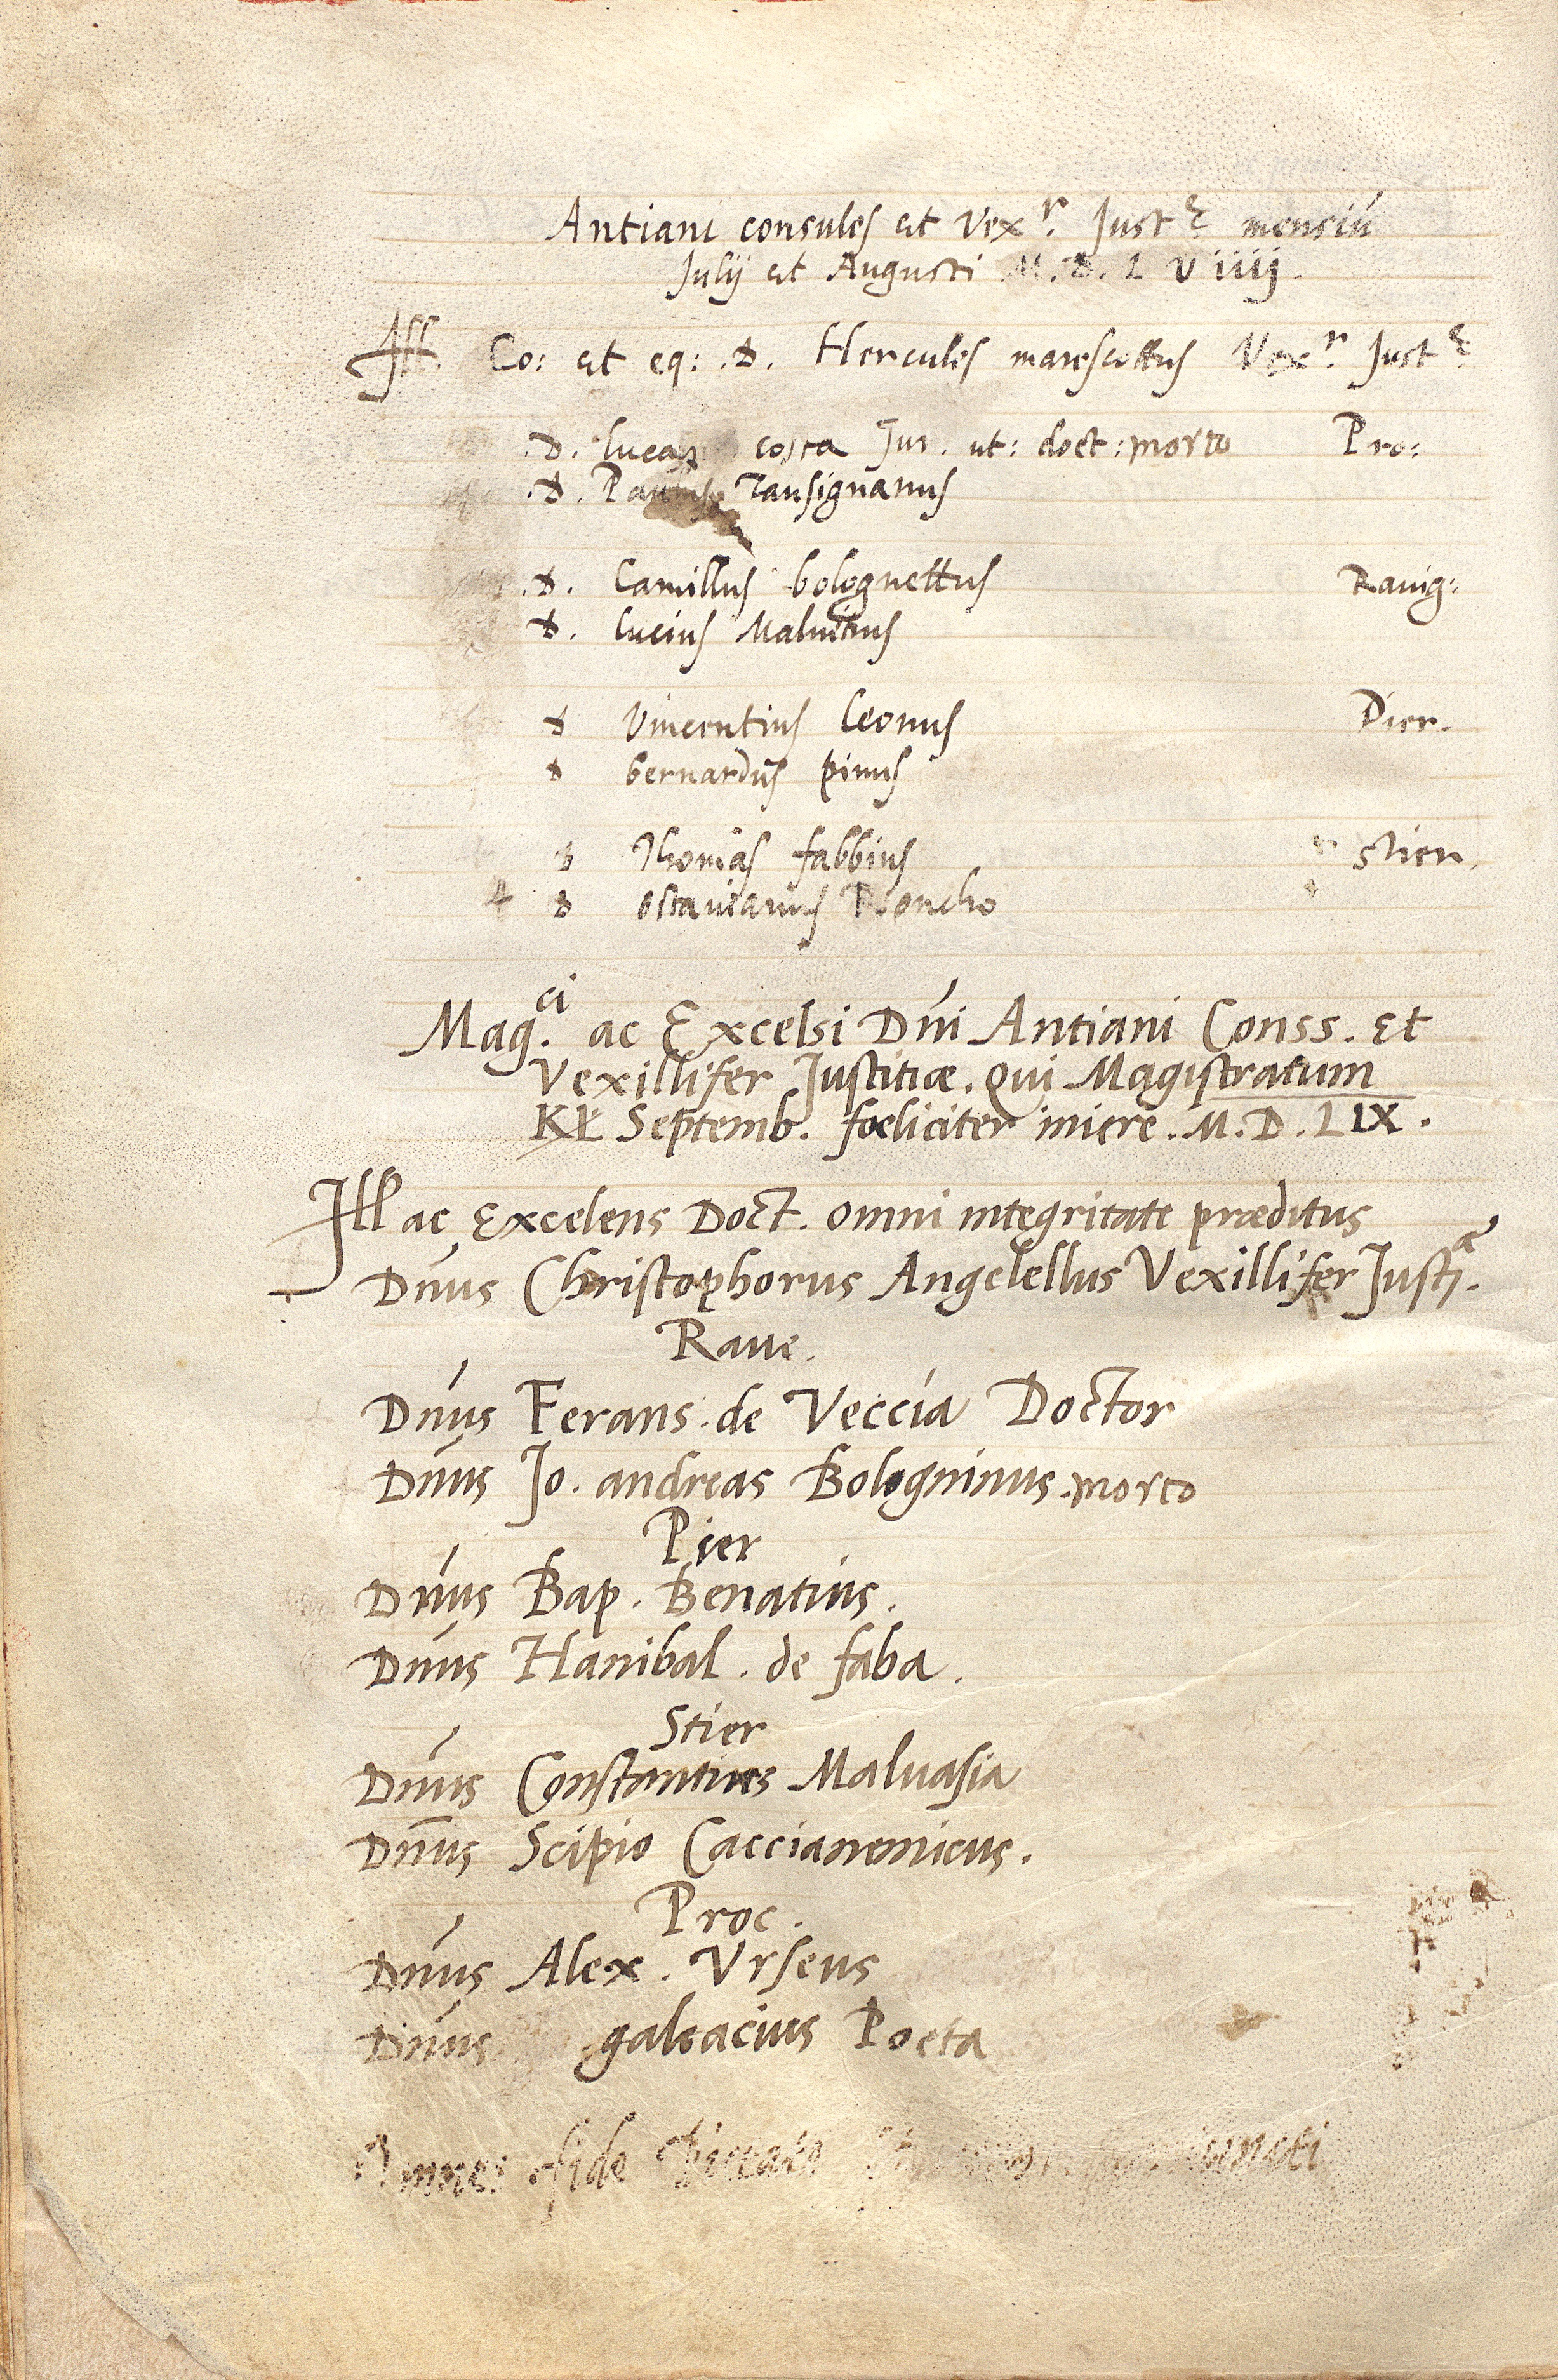 Antiani consules et Vexʳ. Justᵉ mensiū
Julij et Augusti M.D.L Viiij.
Ill. Co: et eq: .D. Hercules marescottus Vexʳ. Justᵉ
.D. lucas costa Jur. ut: doct: morto Pro:
.D. Paulus Tausignanus
.D. Camillus bolognettus Rauig:
D. lucius Maluitius
D Vincentius leonus Pier.
D bernardus pinus
D Thomas fabbius stier.
D ottauianus Roncho
Mag.ᶜⁱ ac Excelsi Dñi Antiani Conss. et
Vexillifer Justitiæ. qui Magistratum
Kł Septemb. fœliciter iniere. M.D.LIX.
Ill ac Excelens Doct. omni integritate præditus
Dñus Christophorus Angelellus Vexillifer Justᵉ.
Raue.
Dñus Ferans. de Veccia Doctor
Dñus Jo. andreas Bologninus. morto
Pier
Dñus Bap. Benatius.
Dñus Hanibal. de faba.
Stier
Dñus Constantius Maluasia
Dñus Scipio Caccianemicus.
Proc.
Dñus Alex. Vrseus
Dñus galeacius Poeta
Omnes fide